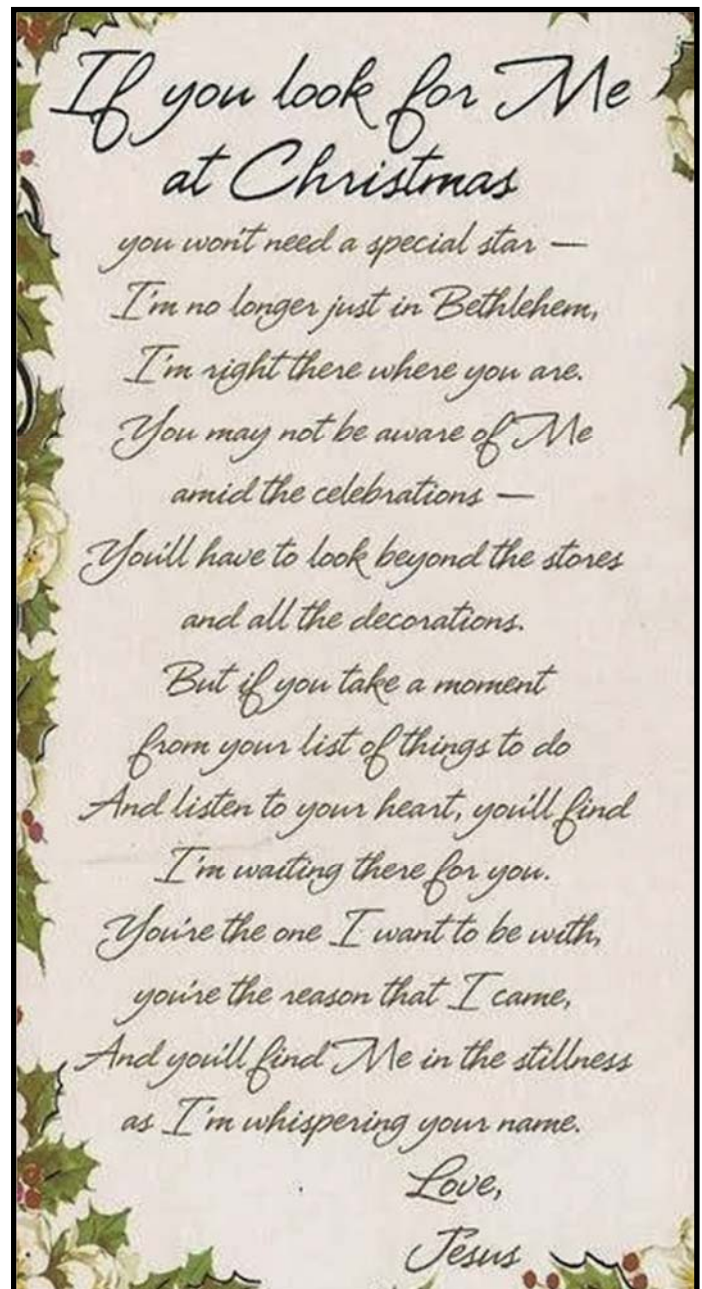 If you look for Me
at Christmas
you won't need a special star —
I'm no longer just in Bethlehem,
I'm right there where you are.
You may not be aware of Me
amid the celebrations —
You'll have to look beyond the stores
and all the decorations.
But if you take a moment
from your list of things to do
And listen to your heart, you'll find
I'm waiting there for you.
You're the one I want to be with,
you're the reason that I came,
And you'll find Me in the stillness
as I'm whispering your name.
Love,
Jesus